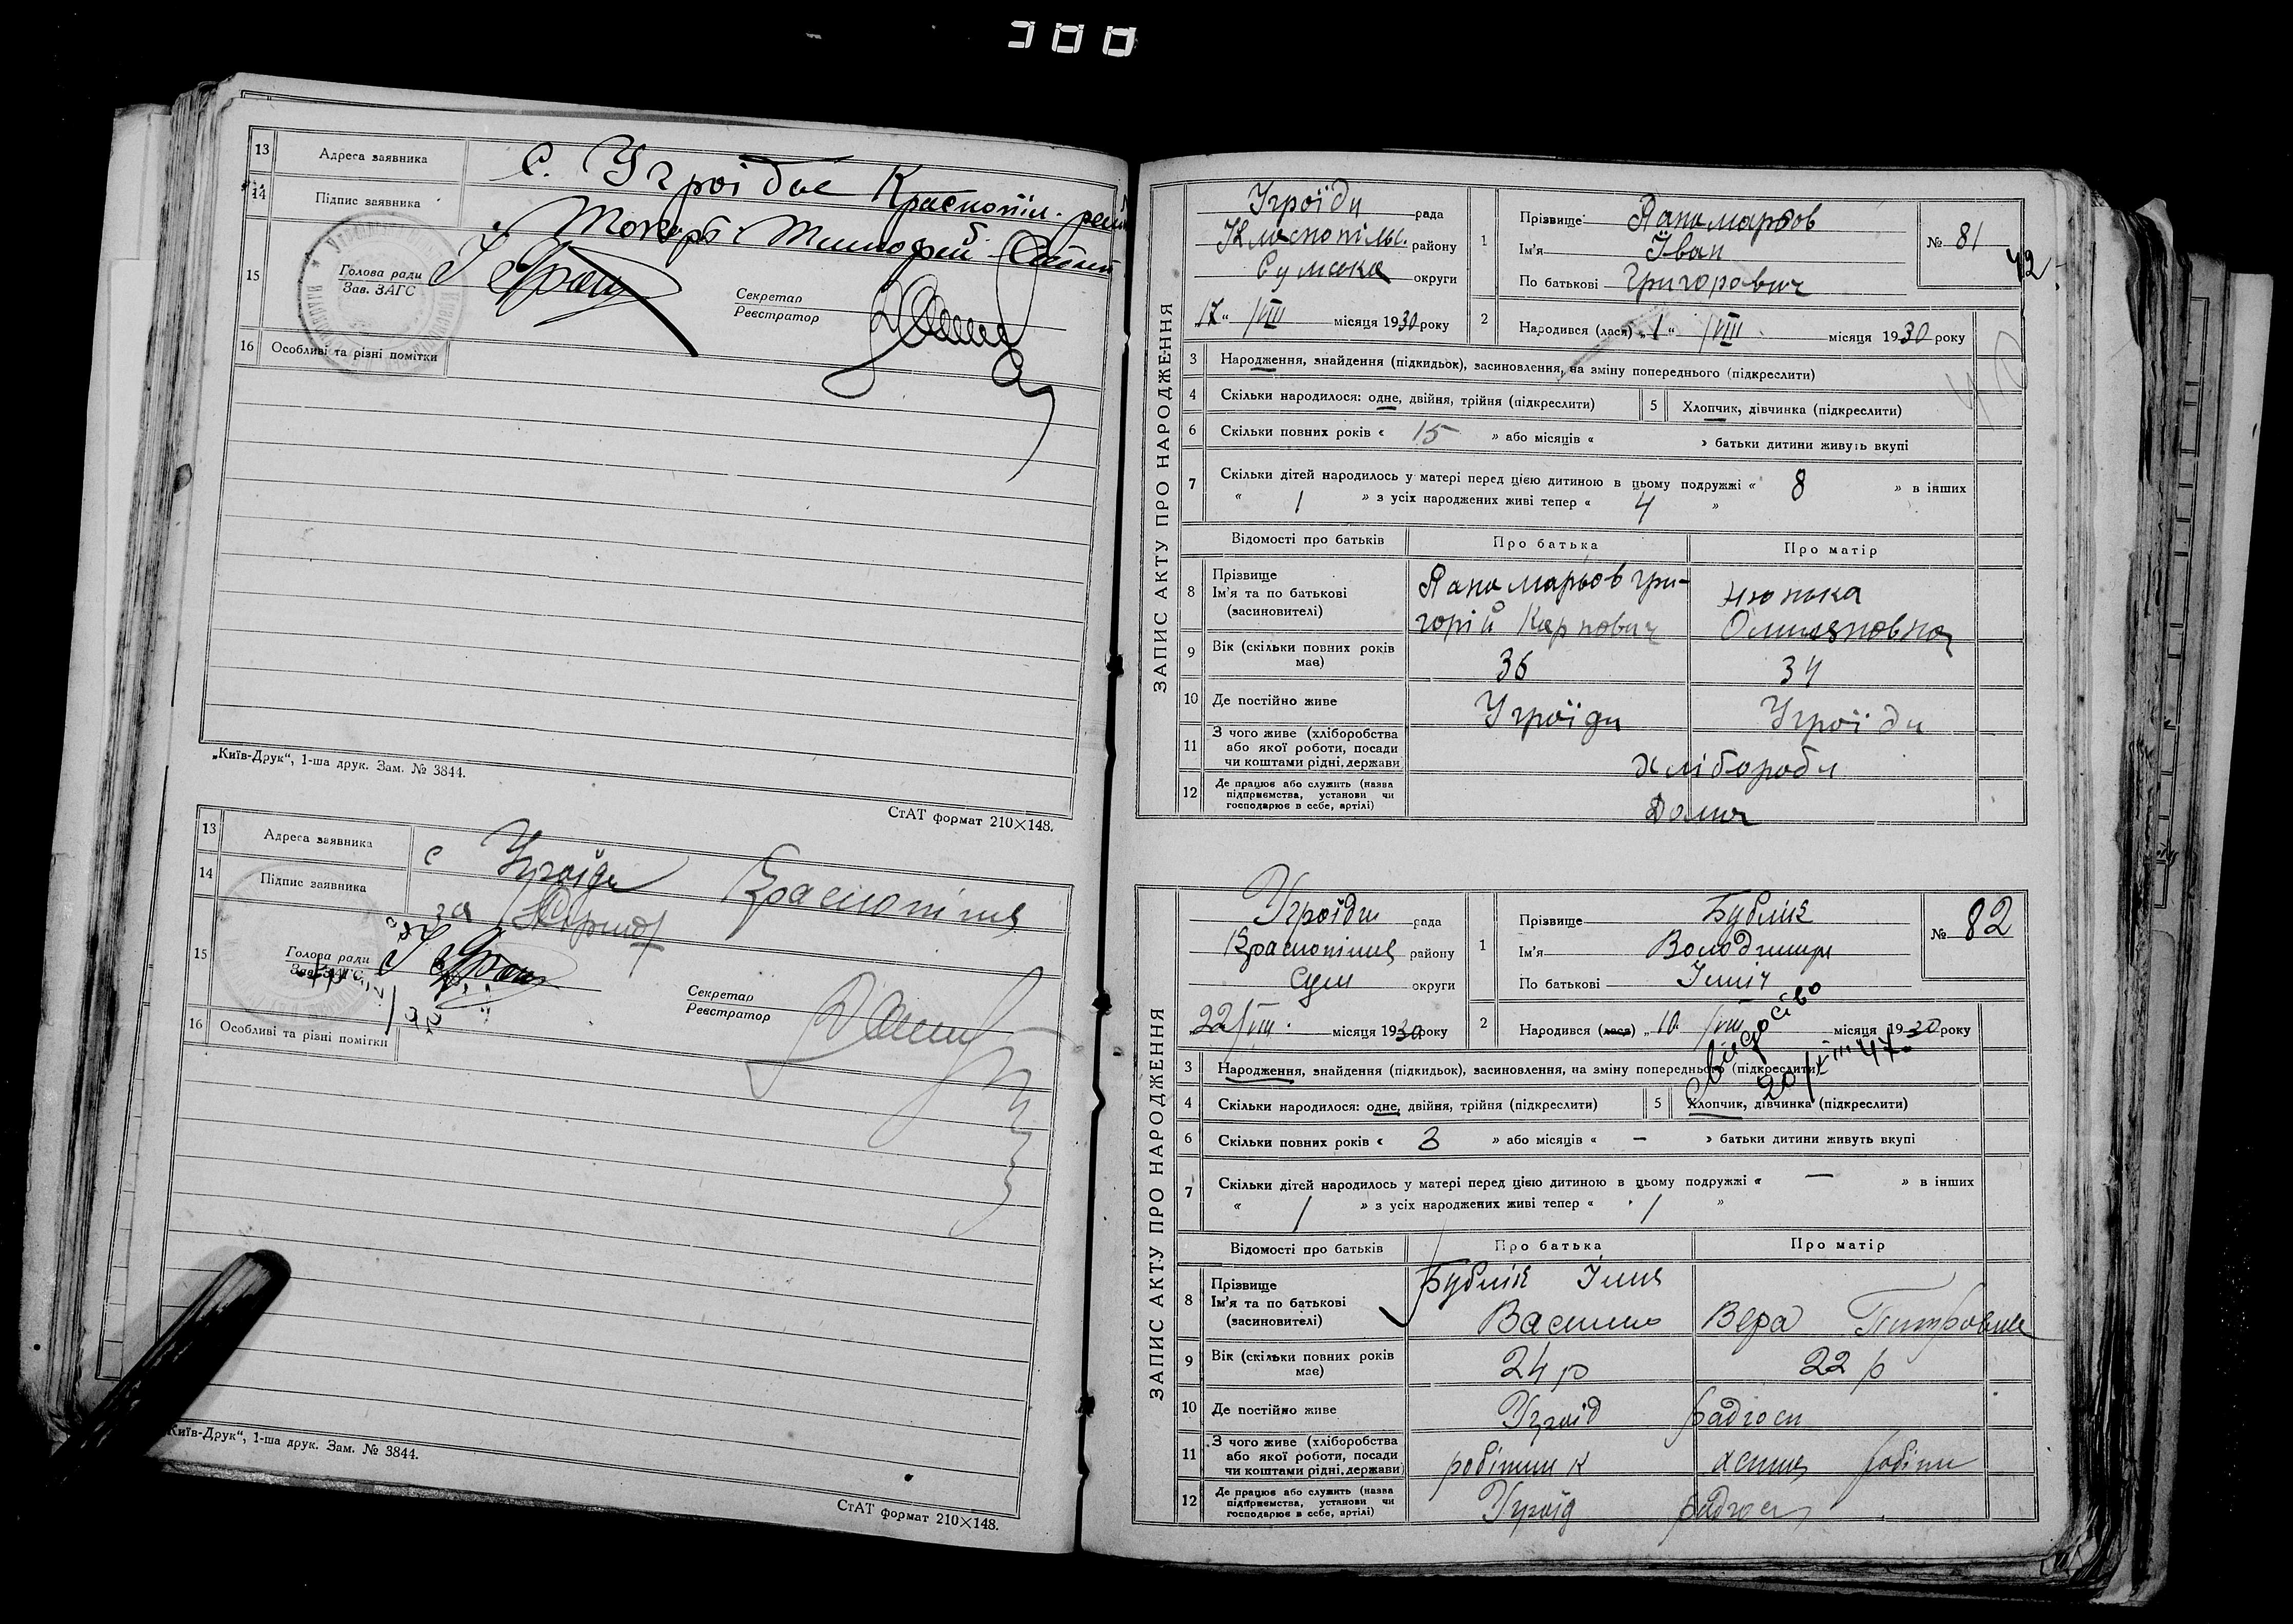 300
13 Адреса заявника с. Угроїди Краснопіл.
14 Підпис заявника Токарь Тимофей
15 Голова ради
Зав. ЗАГС
Секретар
Реєстратор
16 Особливі та різні помітки
„Київ-Друк“, 1-ша друк. Зам. № 3844.
СтАТ формат 210×148.
13 Адреса заявника с Угроїди Краснопілля
14 Підпис заявника за
15 Голова ради
Зав. ЗАГС
Секретар
Реєстратор
16 Особливі та різні помітки
Київ-Друк“, 1-ша друк. Зам. № 3844.
СтАТ формат 210×148.
ЗАПИС АКТУ ПРО НАРОДЖЕННЯ
Угроїди рада
Краснопільс. району
Сумська округи
17 “ /VIII місяця 1930 року
1 Прізвище Панамарьов
Ім'я Іван
По батькові Григорович
№ 81
42
2 Народився (лася) „ 1 “ /VIII місяця 1930 року
3 Народження, знайдення (підкидьок), засиновлення, на зміну попереднього (підкреслити)
4 Скільки народилося: одне, двійня, трійня (підкреслити) 5 Хлопчик, дівчинка (підкреслити)
6 Скільки повних років « 15 » або місяців « » батьки дитини живуть вкупі
7 Скільки дітей народилось у матері перед цією дитиною в цьому подружжі « 8 » в інших
« 1 » з усіх народжених живі тепер « 4 »
Відомості про батьків Про батька Про матір
8 Прізвище
Ім'я та по батькові
(засиновителі)
Панамарьов Гри-
горій Карпович
9 Вік (скільки повних років має) 36 34
10 Де постійно живе Угроїди Угроїди
11 З чого живе (хліборобства
або якої роботи, посади
чи коштами рідні, держави) хлібороби
12 Де працює або служить (назва
підприємства, установи чи
господарює в себе, артілі) Дома
ЗАПИС АКТУ ПРО НАРОДЖЕННЯ
Угроїди рада
Краснопілля району
Суми округи
22/VIII. місяця 1930 року
1 Прізвище Бублік
Ім'я Володимир
По батькові Ілліч
№ 82
2 Народився (лася) „ 10. /VIII місяця 1930 року
свидоство
20/VIII 47
3 Народження, знайдення (підкидьок), засиновлення, на зміну попереднього (підкреслити)
4 Скільки народилося: одне, двійня, трійня (підкреслити) 5 Хлопчик, дівчинка (підкреслити)
6 Скільки повних років « 3 » або місяців « — » батьки дитини живуть вкупі
7 Скільки дітей народилось у матері перед цією дитиною в цьому подружжі « — » в інших
« 1 » з усіх народжених живі тепер « 1 »
Відомості про батьків Про батька Про матір
8 Прізвище
Ім'я та по батькові
(засиновителі)
Бублік Ілля
Василю Вера Питровна
9 Вік (скільки повних років має) 24 р 22 р
10 Де постійно живе Угроїд радгосп
11 З чого живе (хліборобства
або якої роботи, посади
чи коштами рідні, держави) робітник
12 Де працює або служить (назва
підприємства, установи чи
господарює в себе, артілі) Угроїд радгосп